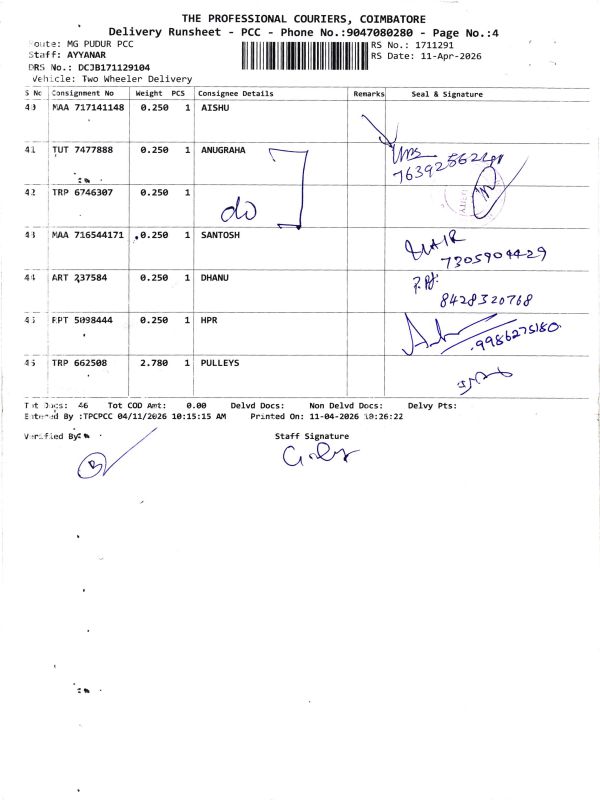 THE PROFESSIONAL COURIERS, COIMBATORE
Delivery Runsheet - PCC - Phone No.:9047080280 - Page No.:4
Route: MG PUDUR PCC
RS No.: 1711291
Staff: AYYANAR
RS Date: 11-Apr-2026
DRS No.: DCJB171129104
Vehicle: Two Wheeler Delivery
S No Consignment No Weight PCS Consignee Details Remarks Seal & Signature
40 MAA 717141148 0.250 1 AISHU
41 TUT 7477888 0.250 1 ANUGRAHA
42 TRP 6746307 0.250 1 do
43 MAA 716544171 0.250 1 SANTOSH
7305904429
44 ART 237584 0.250 1 DHANU
8428320768
45 RPT 5098444 0.250 1 HPR
9986275180
46 TRP 662508 2.780 1 PULLEYS
Tot Docs: 46 Tot COD Amt: 0.00 Delvd Docs: Non Delvd Docs: Delvy Pts:
Entered By :TPCPCC 04/11/2026 10:15:15 AM Printed On: 11-04-2026 10:26:22
Verified By: Staff Signature